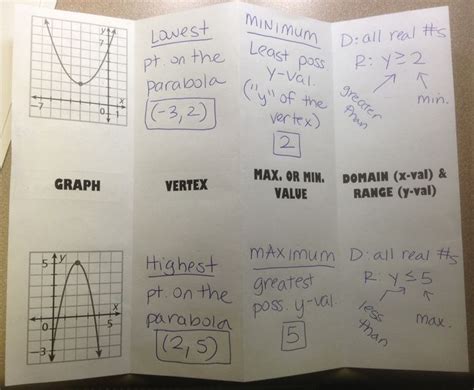 y
7
-7
0
1
x
Lowest
pt. on the
parabola
(-3, 2)
MINIMUM
Least poss.
y-val.
("y" of the
vertex)
2
D: all real #s
R: y ≥ 2
greater
than
min.
GRAPH
VERTEX
MAX. OR MIN.
VALUE
DOMAIN (x-val) &
RANGE (y-val)
5
y
0
5
x
-3
Highest
pt. on the
parabola
(2, 5)
mAXimum
greatest
poss. y-val.
5
D: all real #s
R: y ≤ 5
less
than
max.